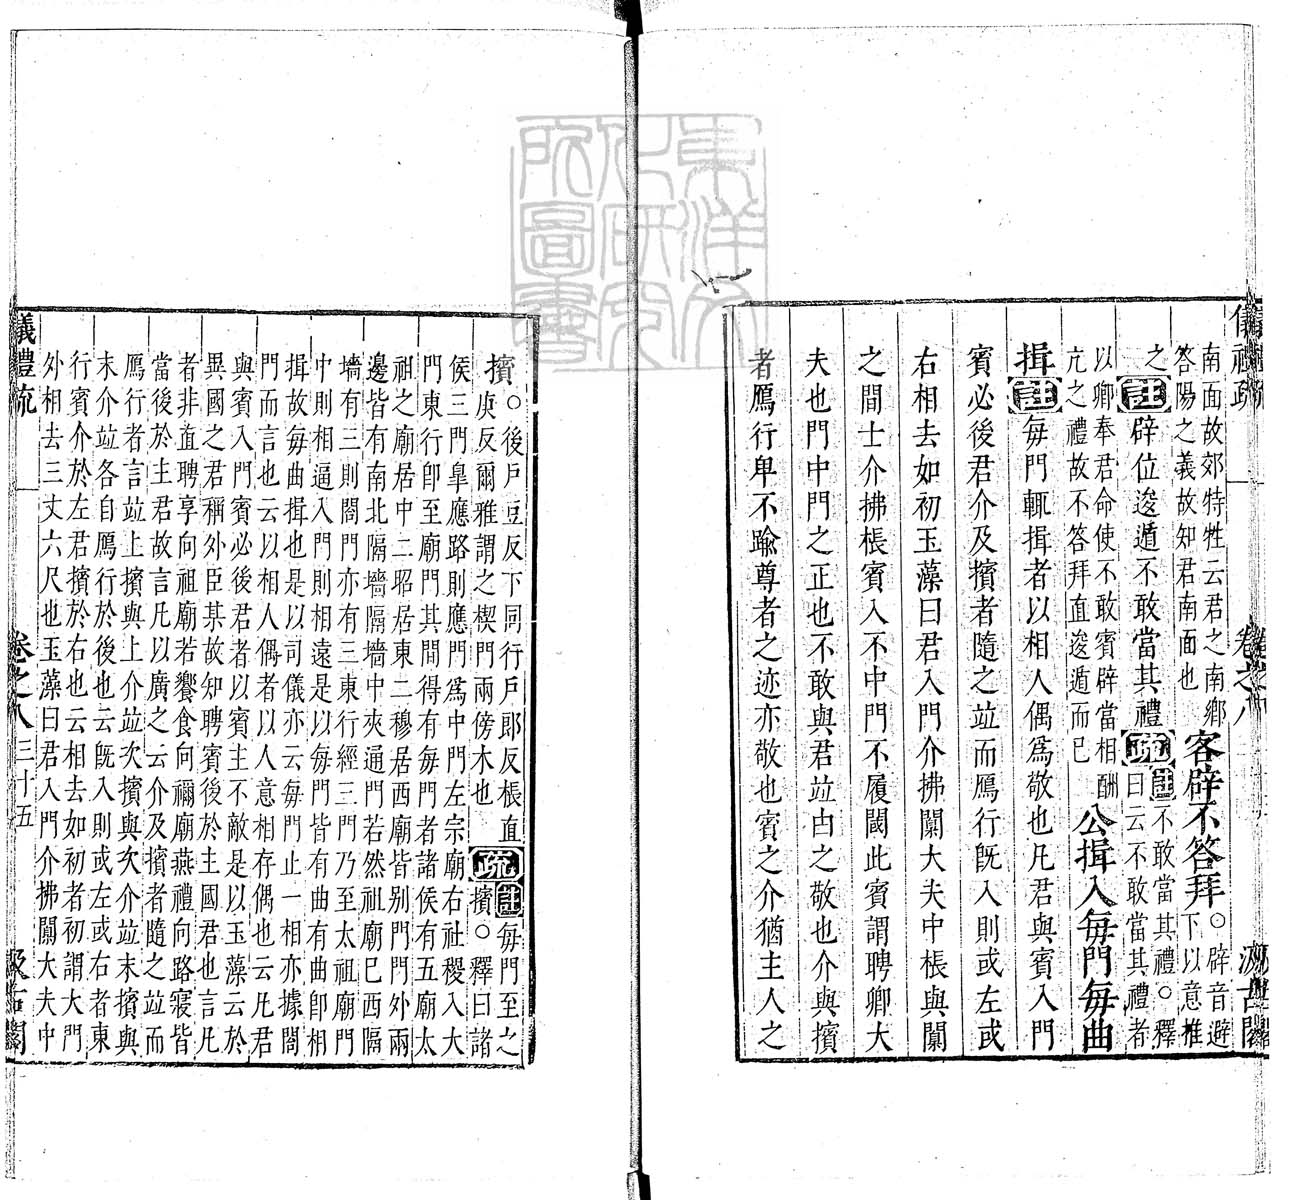 儀禮疏
卷之八
汲古閣
南面故郊特牲云君之南鄉
答陽之義故知君南面也
客辟不答拜
○辟音避
下以意推
之
註
辟位逡遁不敢當其禮
疏
註
不敢當其禮○釋
曰云不敢當其禮者
以卿奉君命使不敢賓辟當相酬
亢之禮故不答拜直逡遁而已
公揖入每門每曲
揖
註
每門輒揖者以相人偶爲敬也凡君與賓入門
賓必後君介及擯者隨之竝而鴈行旣入則或左或
右相去如初玉藻曰君入門介拂闑大夫中棖與闑
之間士介拂棖賓入不中門不履閾此賓謂聘卿大
夫也門中門之正也不敢與君竝由之敬也介與擯
者鴈行卑不踰尊者之迹亦敬也賓之介猶主人之
擯
○後戶豆反下同行戶郎反棖直
庚反爾雅謂之楔門兩傍木也
疏
註
每門至之
擯○釋曰諸
侯三門臯應路則應門爲中門左宗廟右社稷入大
門東行卽至廟門其間得有每門者諸侯有五廟太
祖之廟居中二昭居東二穆居西廟皆别門門外兩
邊皆有南北隔墻隔墻中夾通門若然祖廟已西隔
墻有三則閤門亦有三東行經三門乃至太祖廟門
中則相逼入門則相遠是以每門皆有曲有曲卽相
揖故每曲揖也是以司儀亦云每門止一相亦據閤
門而言也云以相人偶者以人意相存偶也云凡君
與賓入門賓必後君者以賓主不敵是以玉藻云於
異國之君稱外臣某故知聘賓後於主國君也言凡
者非直聘享向祖廟若饗食向禰廟燕禮向路寢皆
當後於主君故言凡以廣之云介及擯者隨之竝而
鴈行者言竝上擯與上介竝次擯與次介竝末擯與
末介竝各自鴈行於後也云旣入則或左或右者東
行賓介於左君擯於右也云相去如初者初謂大門
外相去三丈六尺也玉藻曰君入門介拂闑大夫中
儀禮疏
卷之八
三十五
汲古閣
東洋文
化研究
所圖書